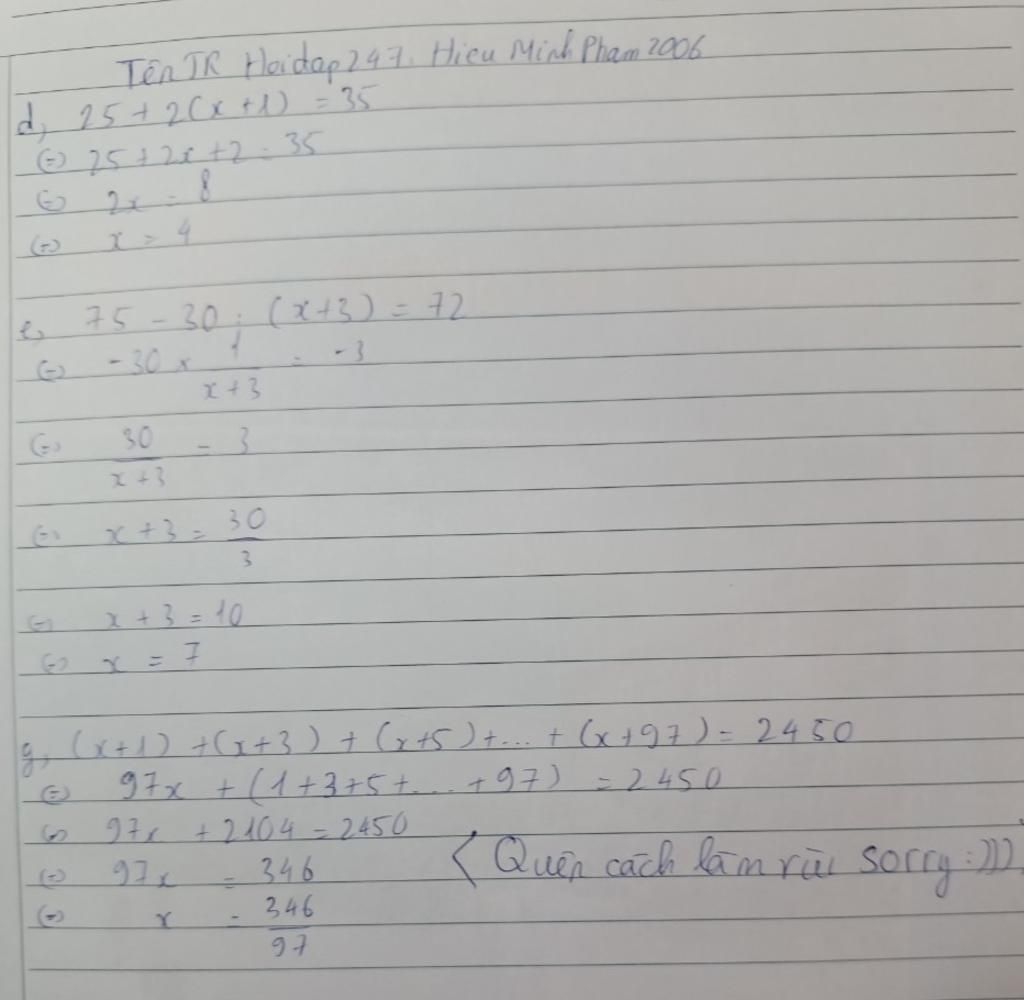 Tên TR Hoidap247. Hieu Minh Pham2006
d, 25 + 2(x+1) = 35
(=) 25 + 2x + 2 = 35
(=) 2x = 8
(=) x = 4
e, 75 - 30 : (x+3) = 72
(=) -30 × 1/(x+3) = -3
(=) 30/(x+3) = 3
(=) x + 3 = 30/3
(=) x + 3 = 10
(=) x = 7
g, (x+1) + (x+3) + (x+5) + ... + (x+97) = 2450
(=) 97x + (1+3+5+... +97) = 2450
(=) 97x + 2104 = 2450
(=) 97x = 346 < Quên cách làm rùi sorry :)))
(=) x = 346/97